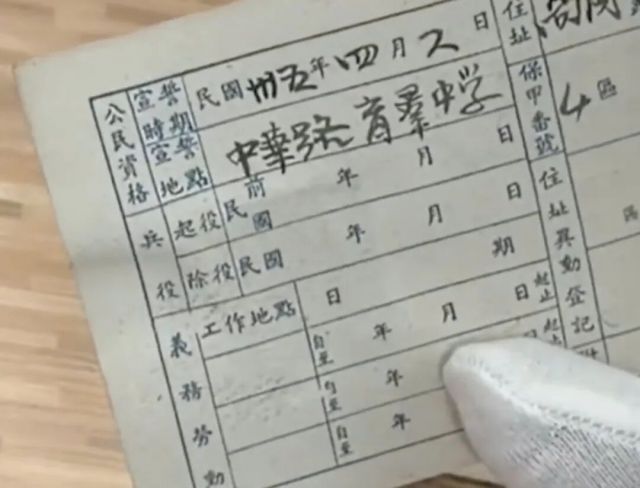 公民資格
宣誓時期
民國卅五年四月
日
宣誓地點
中華路育羣中学
兵役
起役
民前國
年
月
日
除役
民國
年
月
日
義務勞動
工作地點
日
期
自至
年
月
日
起止
自至
年
起止
自至
年
住址
保甲番號
4區
住址異動登記
區